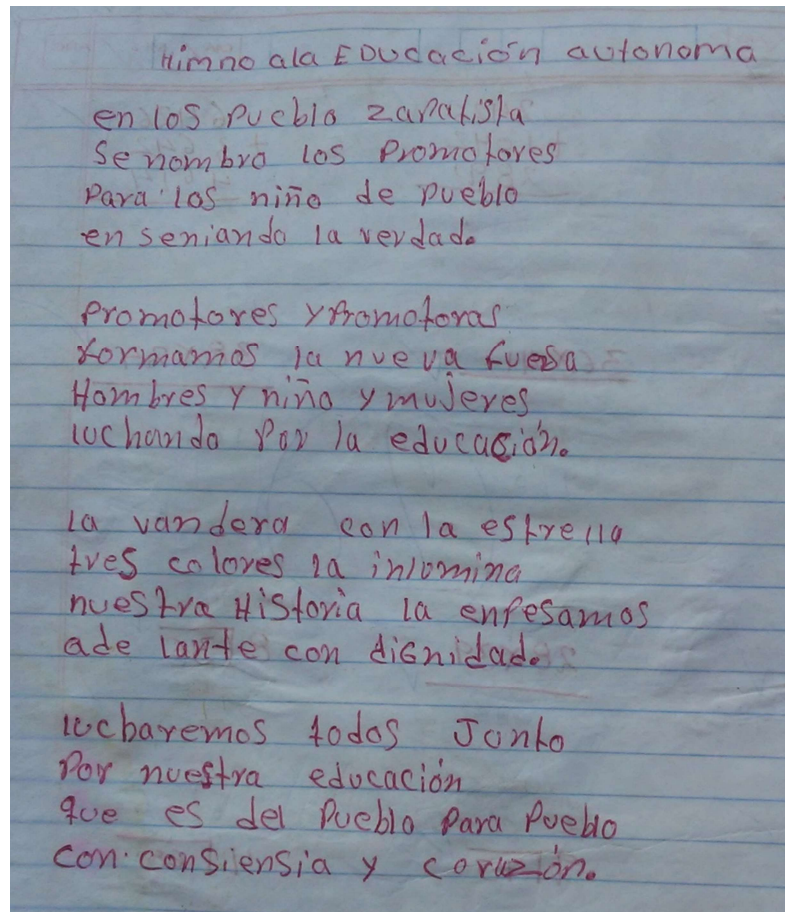 Himno ala EDUcación autonoma
en los pueblo zapatista
se nombra los promotores
para los niño de pueblo
en seniando la verdad.
promotores y promotoras
formamos la nueva fuersa
Hombres y niño y mujeres
luchando por la educasión.
la vandera con la estrella
tres colores la inlomina
nuestra Historia la enpesamos
ade lante con dignidad.
lucharemos todos Junto
por nuestra educación
que es del pueblo para pueblo
con consiensia y corazón.